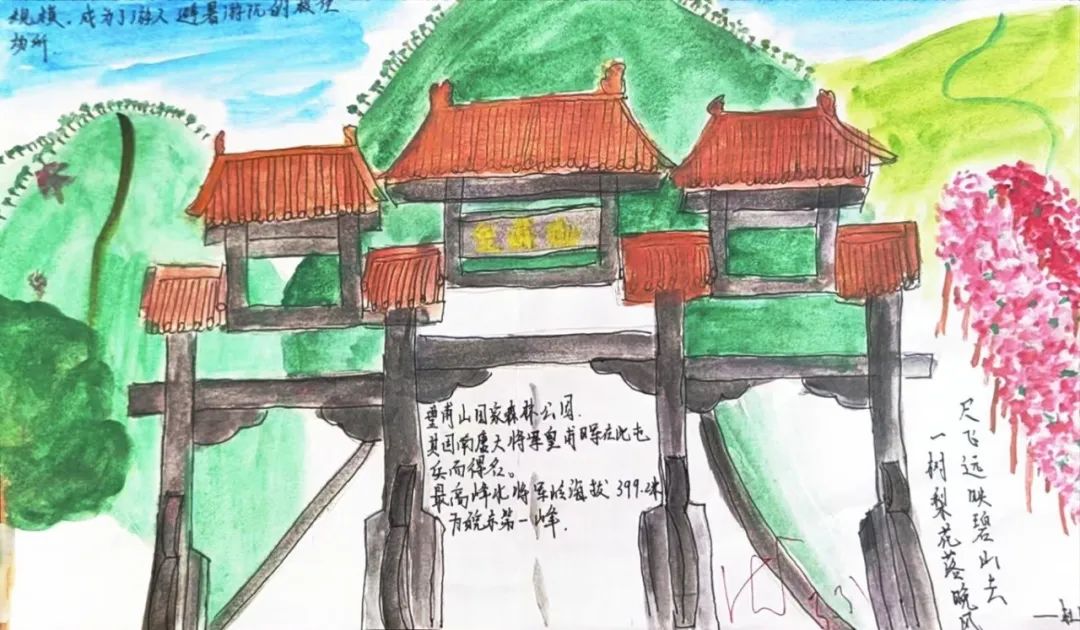 规模、成为了游人避暑游玩的
场所
皇甫山
皇甫山国家森林公园.
其因南唐大将军皇甫晖在此屯
兵而得名。
最高峰北将军岭海拔399.2米
为皖东第一峰.
尺飞远映碧山去
一树梨花落晚风